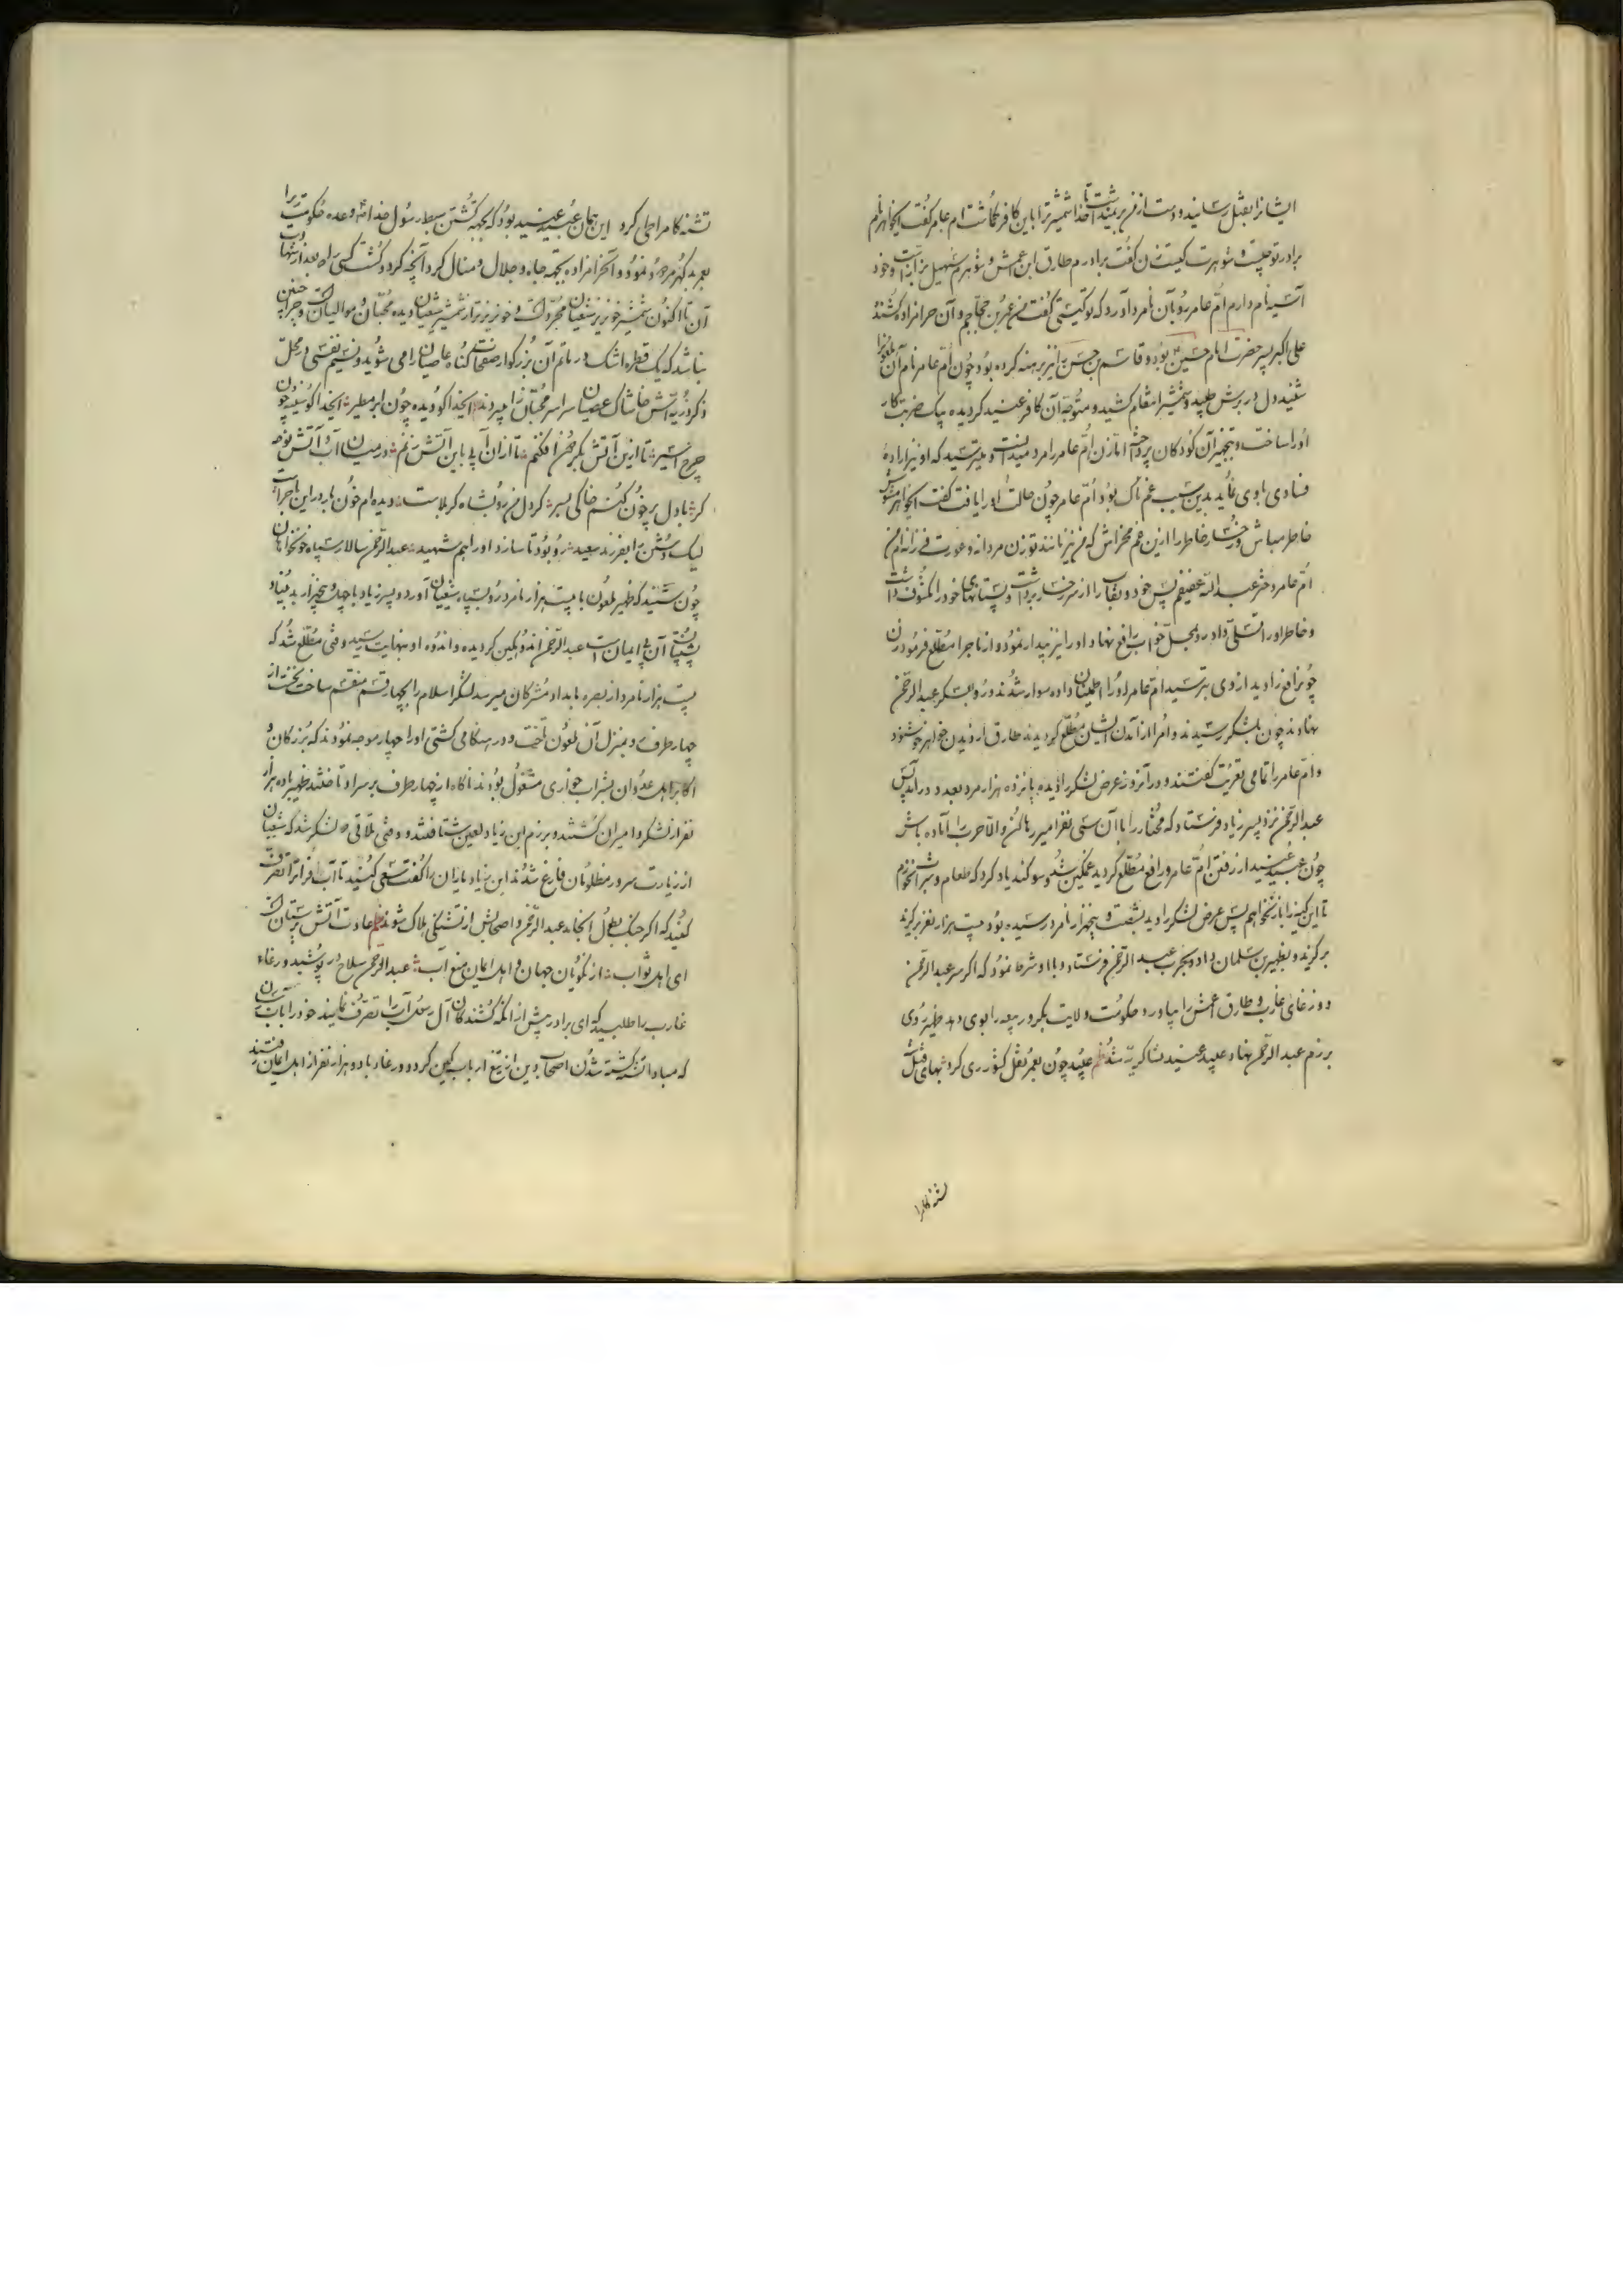 ایشانرا بقتل رسانید و دست از من برنمیداشت تا خدا شمشیر ترا باین کافر گماشت ام عامر گفت ایخواهر نام
برادر تو چیست و شوهرت کیست زن گفت برادرم طارق ابن اعمش و شوهرم سهیل نزار است و خود
آسیه نام دارم ام عامر رو بآن نامرد آورد که تو کیستی گفت من عمر بن حجاجم و آن حرامزاده کشنده
علی اکبر پسر حضرت امام حسین بود و قاسم بن حسن را نیز برهنه کرده بود چون ام عامر نام آن ملعون را
شنید دل در برش طپید و شمشیر انتقام کشید و متوجه آن کافر عنید گردیده بیک ضربت کار
او را ساخت و بتجهیز آن کودکان پرداخت اما زن ام عامر را مرد میدانست و میترسید که او نیز اراده
فسادی باوی نماید بدین سبب غمناک بود ام عامر چون حالت او را یافت گفت ایخواهر مشوش
خاطر مباش و رخسار خاطر را ازین غم مخراش که من نیز مانند تو زن مردانه و عورت فرزانه ام من
ام عامر دختر عبدالله عفیفم پس خود و نقاب را از سر و رخسار برداشت و پستانهای خود را مکشوف داشت
و خاطر او را تسلی داد و رو بمحل خواب رافع نهاد و او را نیز بیدار نمود و از ماجرا مطلع فرمود زن
چون رافع را دید از وی بترسید ام عامر او را اطمینان داده سوار شدند و رو بلشکر عبدالرحمن
نهادند چون بلشکر رسیدند و امرا از آمدن ایشان مطلع گردیدند طارق از دیدن خواهر خوشنود
و ام عامر را تمامی تعزیت گفتند و در آنروز عرض لشکر را دیده پانزده هزار مرد بعدد در آمد پس
عبدالرحمن نزد پسر زیاد فرستاد که مختار را با آن سی نفر امیر رها کن والا حرب را آماده باش
چون عبید عنید از رفتن ام عامر و رافع مطلع گردید غمگین شد و سوگند یاد کرد که طعام و شراب نخورم
تا این کینه را باز نخواهم پس عرض لشکر را دید بشصت و پنجهزار نامرد رسیده بود بیست هزار نفر برگزید
برگزید و بظهیر بن سلمان داد و بحرب عبدالرحمن فرستاد و با او شرط نمود که اگر سر عبدالرحمن
و ورغای غارب و طارق اعمش را بیاورد حکومت ولایت بکر و ربیعه را بوی دهد ظهیر روی
برزم عبدالرحمن نهاد و عبید عنید بنا گریه شد نظم عبید چون بعمر نقل کشور ری کرد بهای قتل
تشنه کامرا
تشنه کام را طی کرد این همان عبید عنید بود که بجهة کشتن سبط رسول خدا وعده حکومت ری را
بعمر بد گهر مرجوع نمود و آنحرامزاده بجهة جاه و جلال و منال کرد آنچه کرد و گشت کسی را که بعد از شهادت
آن تا اکنون شمشیر خونریز شیعیان مجرد است و خونریزتر از شمشیر شیعیان دیده محبان و موالیان است و چرا چنین
نباشد که یک قطره اشک در ماتم آن بزرگوار صفحات گناه عاصیان را می شوید و نسیم نفسی در محل
ذکر وی آتش خاشاک عصیان سراسر محبان را میبرد نظم ایخدا کو دیده چون ابر مطیر ایخدا کو سینه چون
چرخ اثیر تا ازین آتش بگردون افکنم تا از آن آبی باین آتش زنم در میان آب و آتش نوحه
گر با دل پر خون کنم خاکی بسر گر دل من رو بشاه کربلاست دیده ام خون بار در این ماجراست
لیک دشمن را بفرزند سعید رو بود تا سازد او را هم شهید عبدالرحمن سالار سپاه خونخواهان
چون شنید که ظهیر ملعون با بیست هزار نامرد رو بسپاه شیعیان آورد و پسر زیاد با چهل و پنجهزار بد بنیاد
پشتیبان آن بی ایمان است عبدالرحمن اندوهگین گردیده و اندوه او بنهایت رسید وقتی مطلع شد که
بیست هزار نامرد از بصره بامداد مشرکان میرسد لشکر اسلام را بچهار قسم منقسم ساخت نخست از
چهار طرف بمنزل آن ملعون تاخت و در هنگامی کشتی او را چهار موجه نمودند که بزرگان و
اکابر اهل عدوان بشراب خواری مشغول بودند ناگاه از چهار طرف بر سر او تاختند ظهیر با ده هزار
نفر از لشکر و امیران کشتند و برزم ابن زیاد لعین شتافتند و وقتی تلاقی دو لشکر شد که شیعیان
از زیارت سرور مظلومان فارغ شدند ابن زیاد یاران را گفت سعی کنید تا آب فرات را تصرف
کنید که اگر جنگ بطول انجامد عبدالرحمن و اصحابش از تشنگی هلاک شوند نظم عادت آتش پرستان است
ای اهل ثواب از نکویان جهان و اهل ایمان منع آب عبدالرحمن سلاح در پوشید ورغاء
غارب را طلبید که ای برادر پیش از آنکه کشندگان آل رسول آب را تصرف نمایند خود را بآب رسان
که مبادا تشنه کشته شدن اصحاب دین از تیغ ارباب کین گردد ورغاء با دو هزار نفر از اهل ایمان رفتند